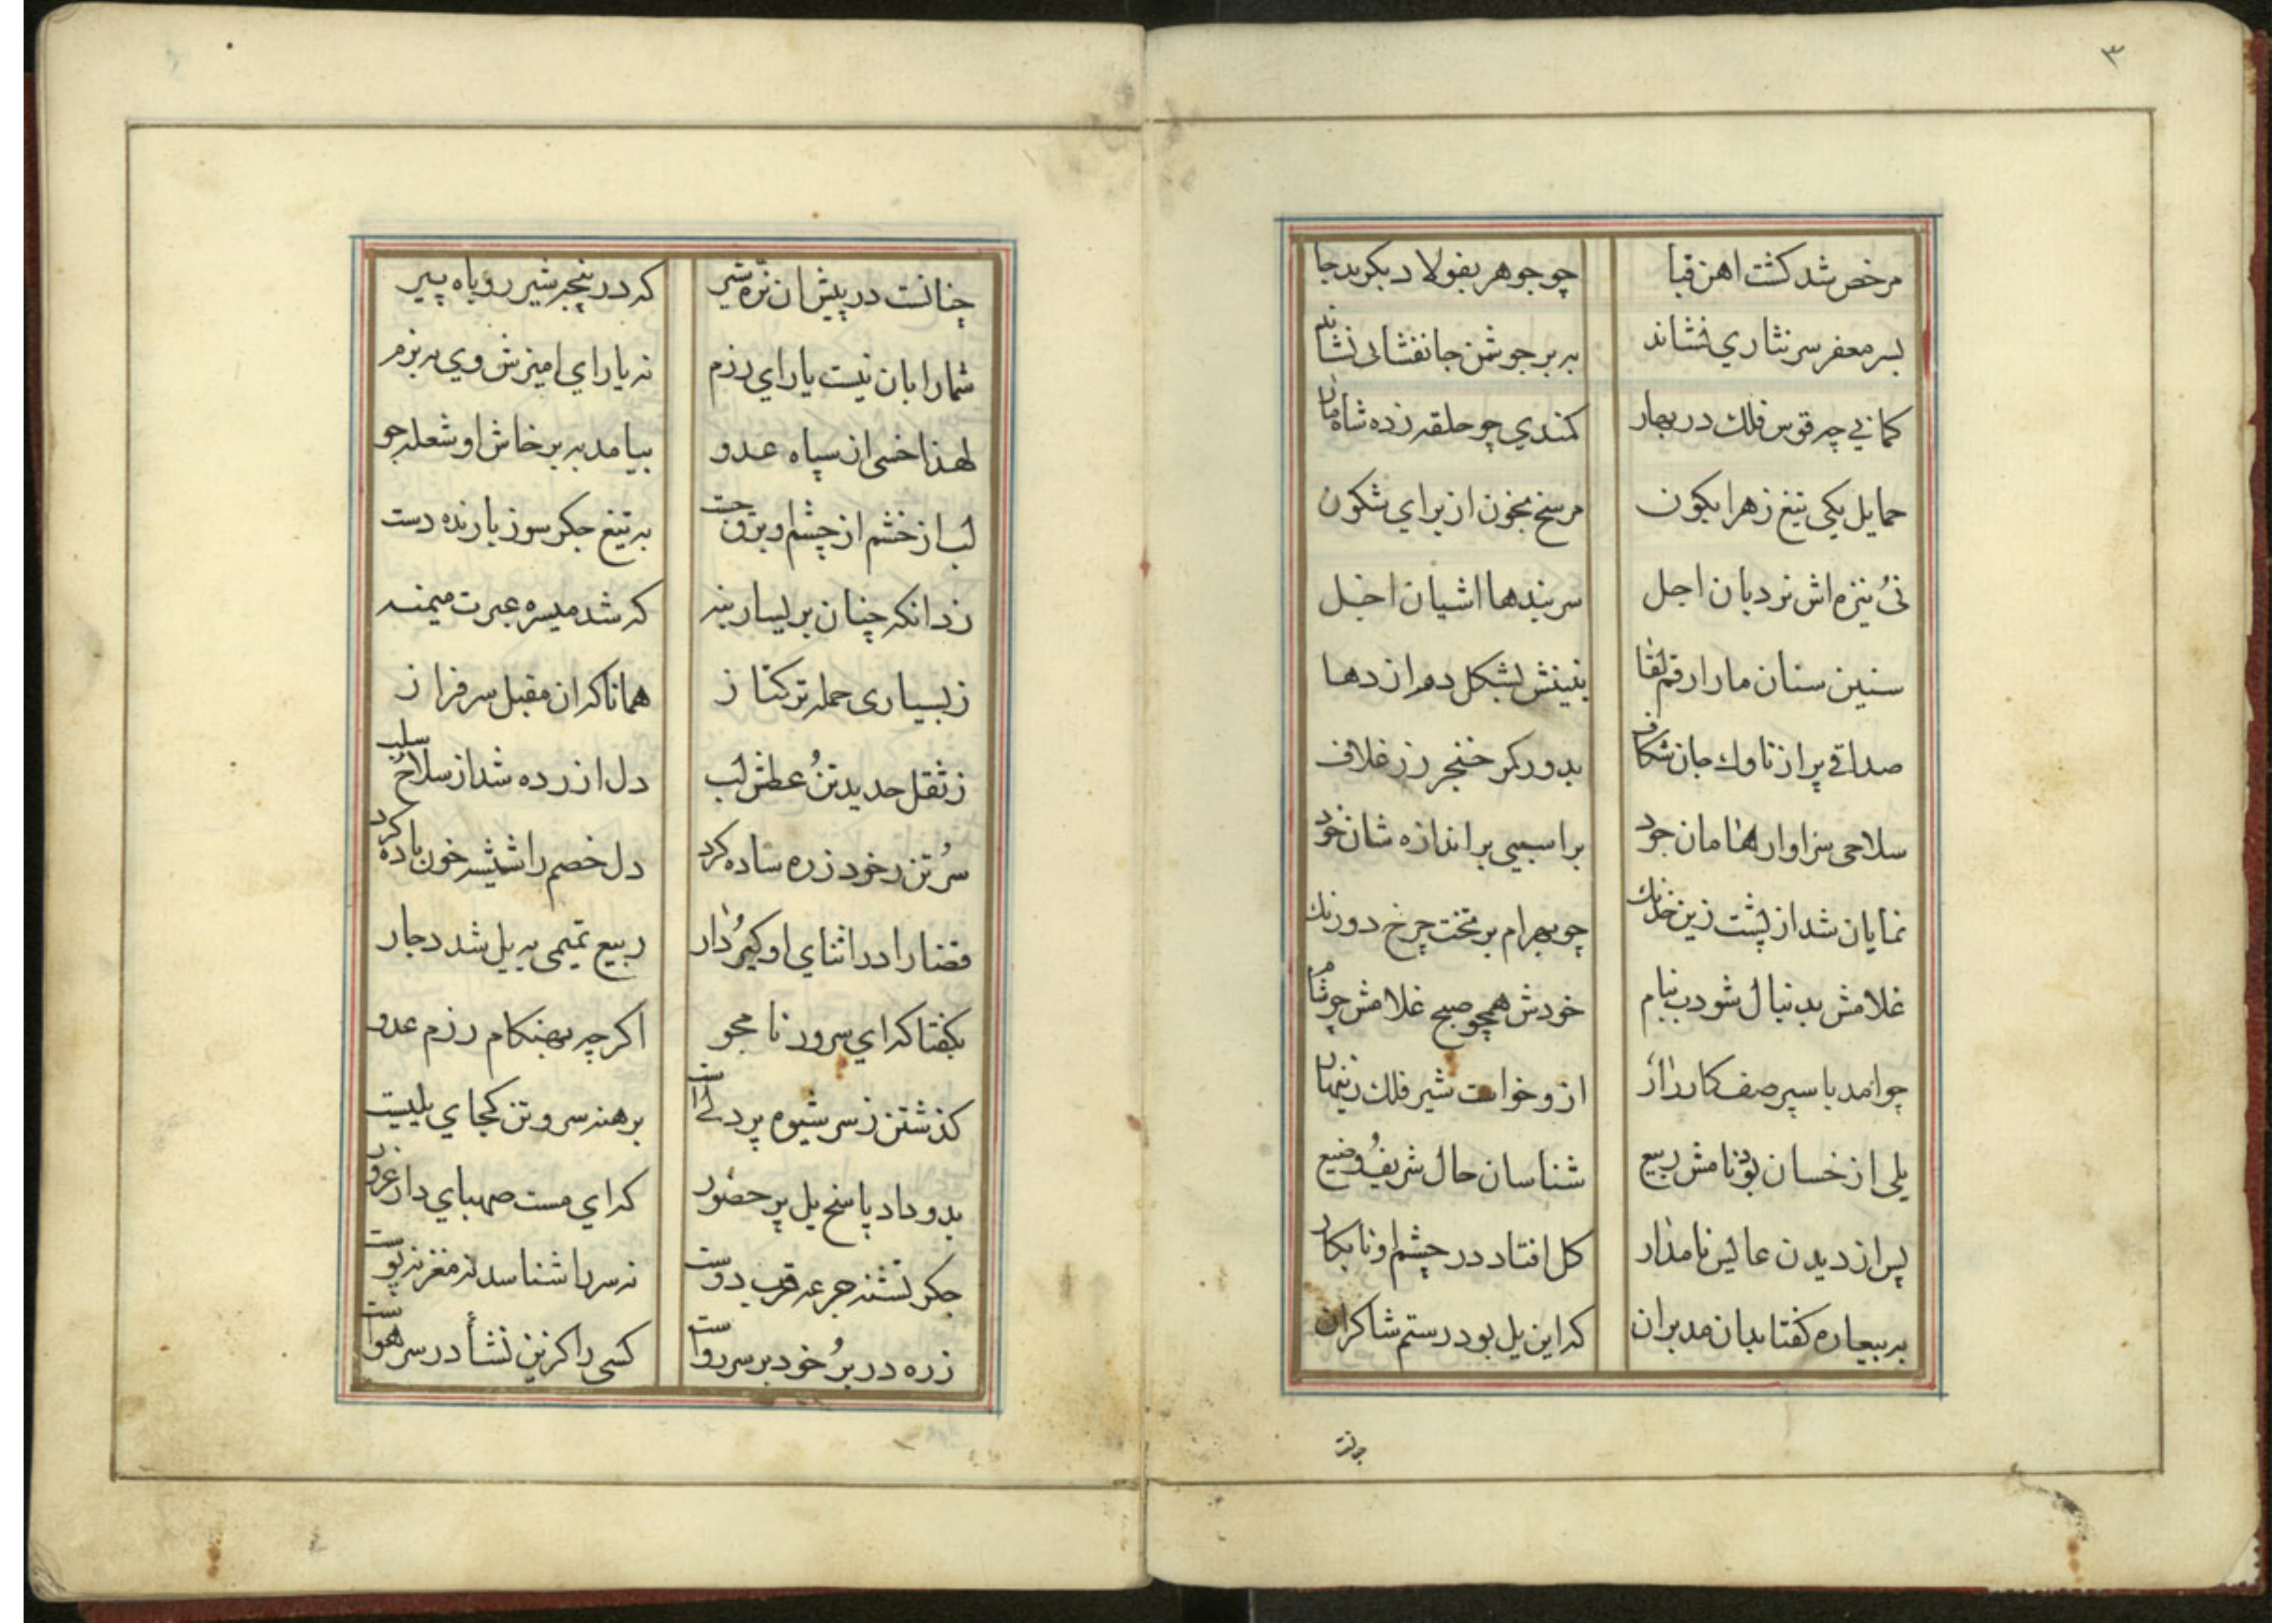 ۳
مرخص شد كشت اهن قبا چو جوهر بفولاد بكربد جا
بسر مغفر سر نثاري فشاند به بر جوشن جانفشانی نشاند
كماني چه قوس فلك در بهار كمندي چو حلقه زده شاه مار
حمايل يكی تيغ زهرابكون مرسخ بخون از براي شكون
نیُ نيزه اش نردبان اجل سر بندها اشيان اجل
سنين سنان مار ارقم لقا بنينش بشكل دم اژدها
صداقی پر از ناوك جان شكاف بدور كمر خنجر زر غلاف
سلاحی سزاوار هامان جود بر اسبی بر اندازه شان خود
نمايان شد از پشت زين خدنك چو بهرام بر تخت چرخ دورنك
غلامش بدنبال شو دب بنام خودش همچو صبح غلامش چو شام
چو امد با سپر صف كارزار ازو خواست شير فلك زينهار
يلی از خسان بود نامش ربيع شناسان حال شريفُ وضيع
پس از ديدن عابس نامدار كل افتاد در چشم او نابكار
به بيعاره كفتا بدان مدبران كه اين يل بود رستم شاكران
چنانت
چنانست در پيش ان نره شير كه در پنجه شير روباه پير
شما را بان نيست ياراي رزم نه ياراي اميزش وي به بزم
لهذا خسی از سپاه عدو بيامد به برخاش او شعله جو
لب از خشم از چشم او برق جست به تيغ جكر سوز يازنده دست
زد انكه چنان بر يسار بنه كه شد ميسره عبرت ميمنه
ز بسياری حمله تركتاز همانا كه ان مقبل سرفراز
ز ثقل حديد تنُ عطش لب دل ازرده شد از سلاحُ سلب
سرُ تن ز خود زره ساده كرد دل خصم را شيشه خون باده كرد
قضا را در اثناي او كيرُ دار ربيع تميمی به يل شد دچار
بكفتا كه اي سرور نامجو اكر چه بهنكام رزم عدو
كذشتن ز سر شيوه پردلے است برهنه سر و تن كجا ي يليست
بدو داد پاسخ يل پر حضور كه اي مست صهباي دار غرور
جكر تشنه جرعه قرب دوست نه سر را شناسد نه مغز نه پوست
زره در برُ خود بر سر رواست كسی را كزين نشأ در سر هواست